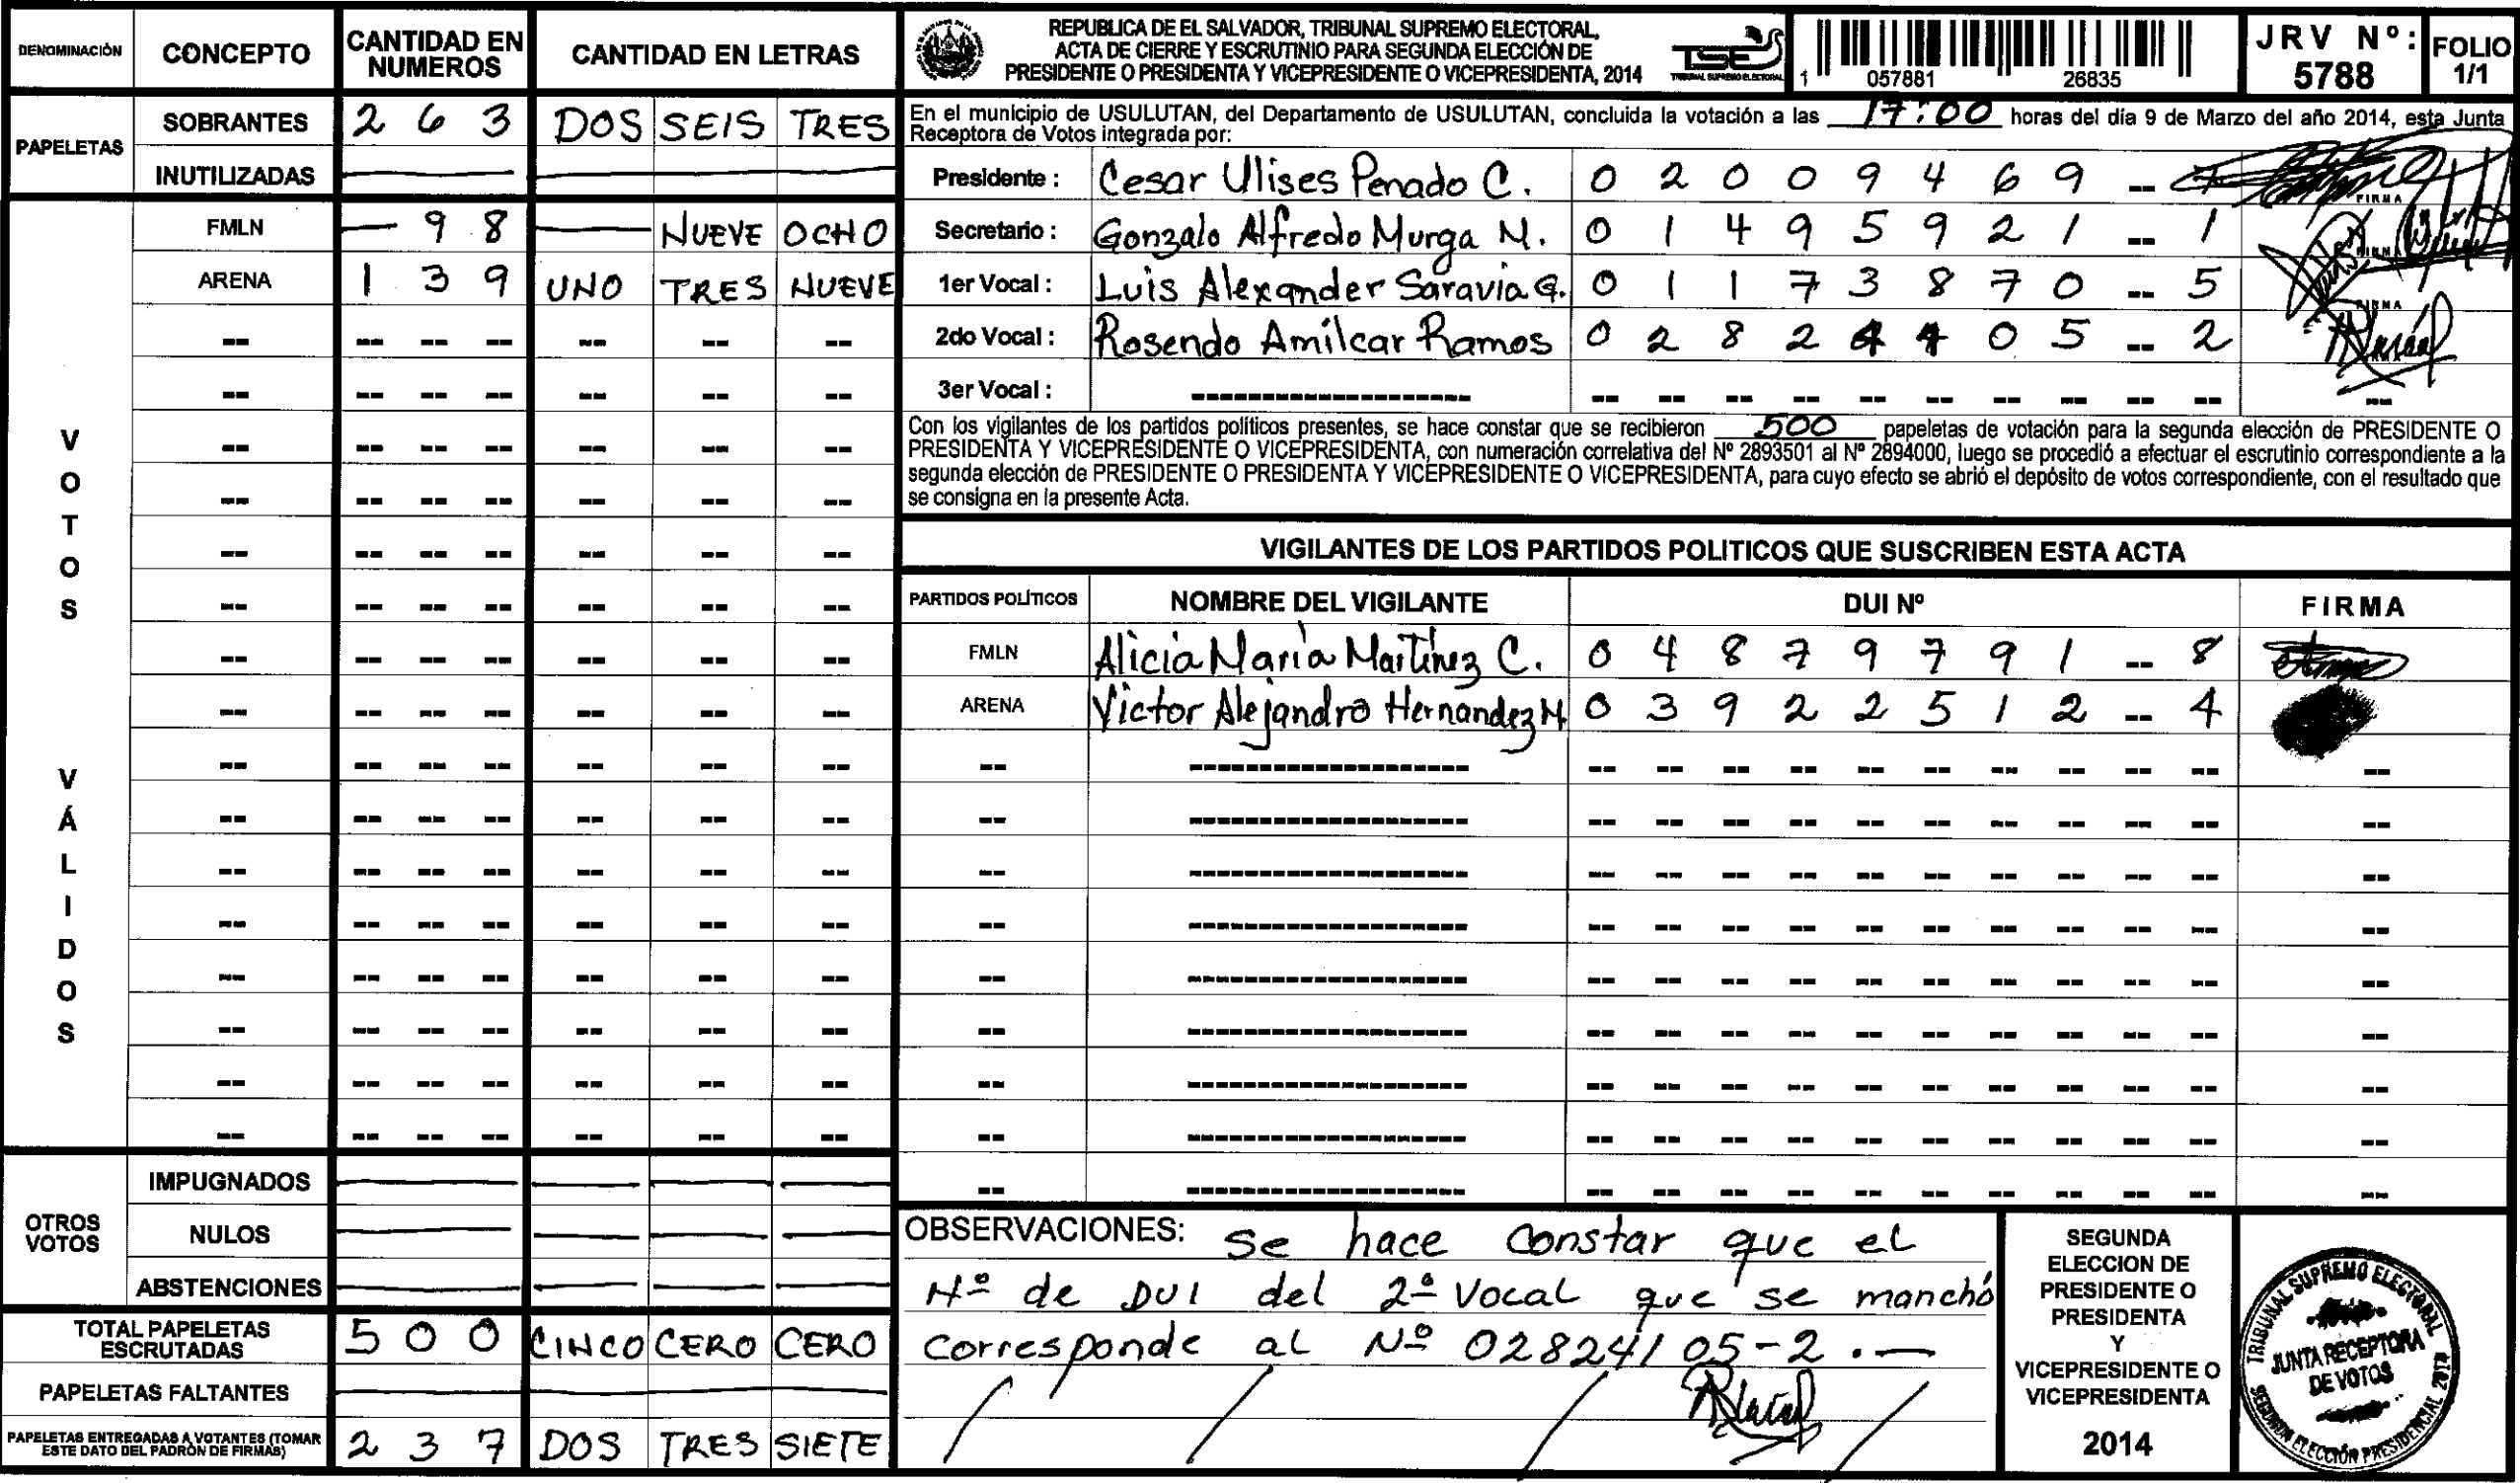 DENOMINACIÓN CONCEPTO CANTIDAD EN NUMEROS CANTIDAD EN LETRAS
PAPELETAS
SOBRANTES 2 6 3 DOS SEIS TRES
INUTILIZADAS
VOTOS VÁLIDOS
FMLN — 9 8 — NUEVE OCHO
ARENA 1 3 9 UNO TRES NUEVE
OTROS VOTOS
IMPUGNADOS
NULOS
ABSTENCIONES
TOTAL PAPELETAS ESCRUTADAS 5 0 0 CINCO CERO CERO
PAPELETAS FALTANTES
PAPELETAS ENTREGADAS A VOTANTES (TOMAR ESTE DATO DEL PADRÓN DE FIRMAS) 2 3 7 DOS TRES SIETE
REPUBLICA DE EL SALVADOR, TRIBUNAL SUPREMO ELECTORAL,
ACTA DE CIERRE Y ESCRUTINIO PARA SEGUNDA ELECCIÓN DE
PRESIDENTE O PRESIDENTA Y VICEPRESIDENTE O VICEPRESIDENTA, 2014
TSE
TRIBUNAL SUPREMO ELECTORAL
1 057881 26835
JRV Nº: 5788
FOLIO 1/1
En el municipio de USULUTAN, del Departamento de USULUTAN, concluida la votación a las 17:00 horas del día 9 de Marzo del año 2014, esta Junta
Receptora de Votos integrada por:
Presidente : Cesar Ulises Penado C. 0 2 0 0 9 4 6 9 -- FIRMA
Secretario : Gonzalo Alfredo Murga M. 0 1 4 9 5 9 2 1 -- 1 FIRMA
1er Vocal : Luis Alexander Saravia G. 0 1 1 7 3 8 7 0 -- 5 FIRMA
2do Vocal : Rosendo Amilcar Ramos 0 2 8 2 4 4 0 5 -- 2
3er Vocal :
Con los vigilantes de los partidos políticos presentes, se hace constar que se recibieron 500 papeletas de votación para la segunda elección de PRESIDENTE O
PRESIDENTA Y VICEPRESIDENTE O VICEPRESIDENTA, con numeración correlativa del Nº 2893501 al Nº 2894000, luego se procedió a efectuar el escrutinio correspondiente a la
segunda elección de PRESIDENTE O PRESIDENTA Y VICEPRESIDENTE O VICEPRESIDENTA, para cuyo efecto se abrió el depósito de votos correspondiente, con el resultado que
se consigna en la presente Acta.
VIGILANTES DE LOS PARTIDOS POLITICOS QUE SUSCRIBEN ESTA ACTA
PARTIDOS POLÍTICOS NOMBRE DEL VIGILANTE DUI Nº FIRMA
FMLN Alicia Maria Martinez C. 0 4 8 7 9 7 9 1 -- 8
ARENA Victor Alejandro Hernandez M 0 3 9 2 2 5 1 2 -- 4
OBSERVACIONES: Se hace constar que el
Nº de DUI del 2º Vocal que se manchó
corresponde al Nº 02824105-2 .—
SEGUNDA
ELECCION DE
PRESIDENTE O
PRESIDENTA
Y
VICEPRESIDENTE O
VICEPRESIDENTA
2014
TRIBUNAL SUPREMO ELECTORAL
JUNTA RECEPTORA
DE VOTOS
SEGUNDA ELECCIÓN PRESIDENCIAL 2014